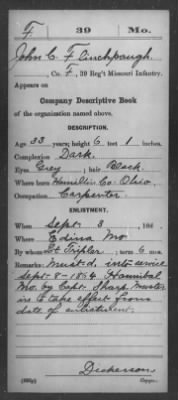 F | 39 | Mo.
John C. Flinchpaugh
, Co. F, 39 Reg't Missouri Infantry.
Appears on
Company Descriptive Book
of the organization named above.
DESCRIPTION.
Age 33 years; height 6 feet 1 inches.
Complexion Dark.
Eyes Grey ; hair Black
Where born Hamilton Co. Ohio.
Occupation Carpenter
ENLISTMENT.
When Sept. 3 , 186 .
Where Edina Mo
By whom Lt Tripler ; term 6 mos.
Remarks: Must'd. into service
Sept. 8-1864. Hannibal
Mo. by Capt. Sharp. Muster
in to take effect from
date of enlistment.
Dickerson
Copyist.